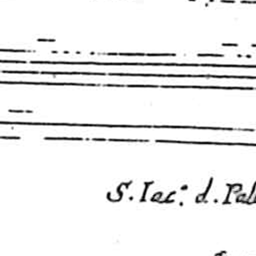 S. Iac: d. Pal